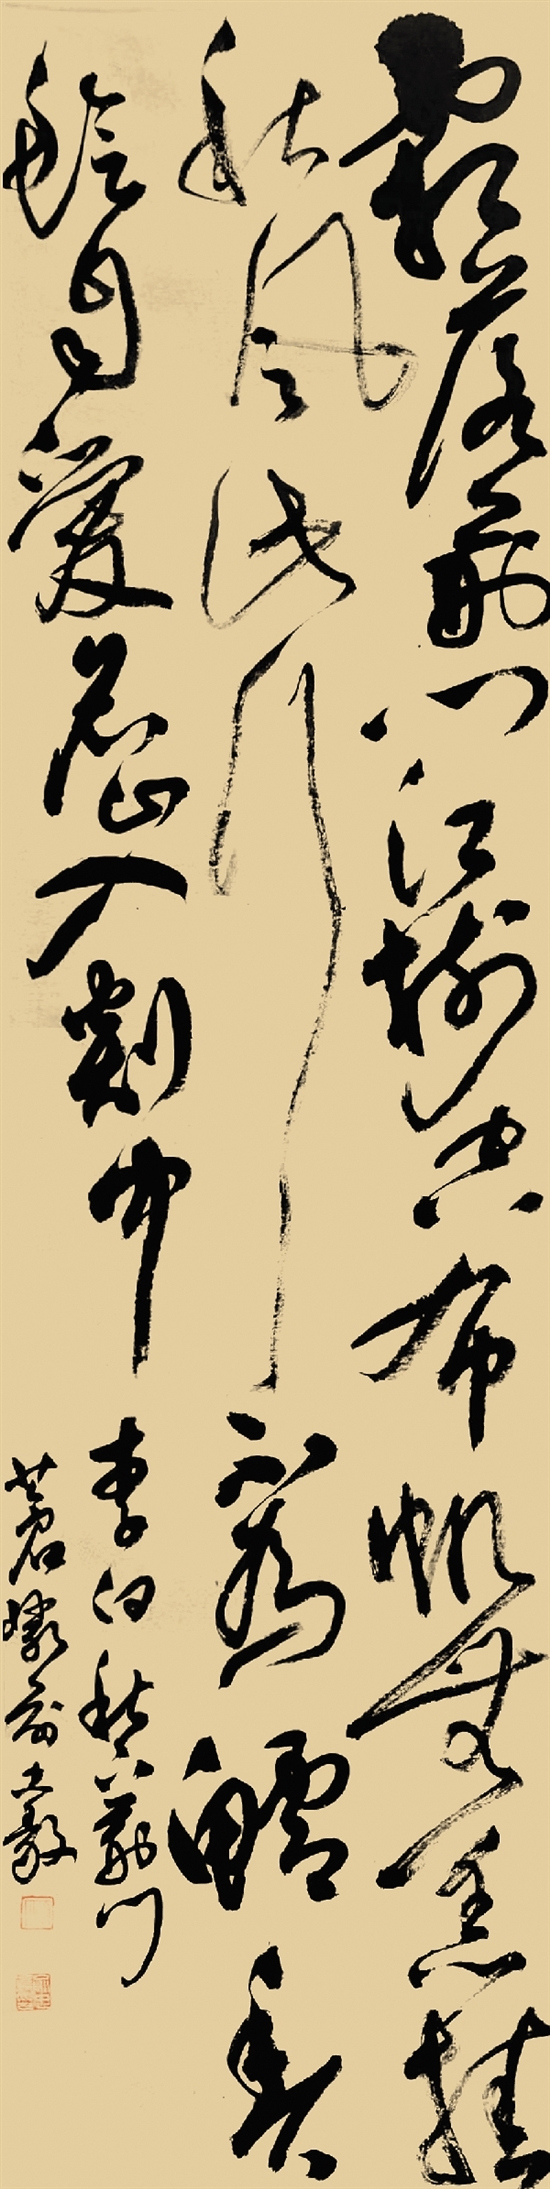 霜落荊門江樹空布帆無恙掛
秋風此行不為鱸魚
鱠自愛名山入剡中
李白秋下荊門